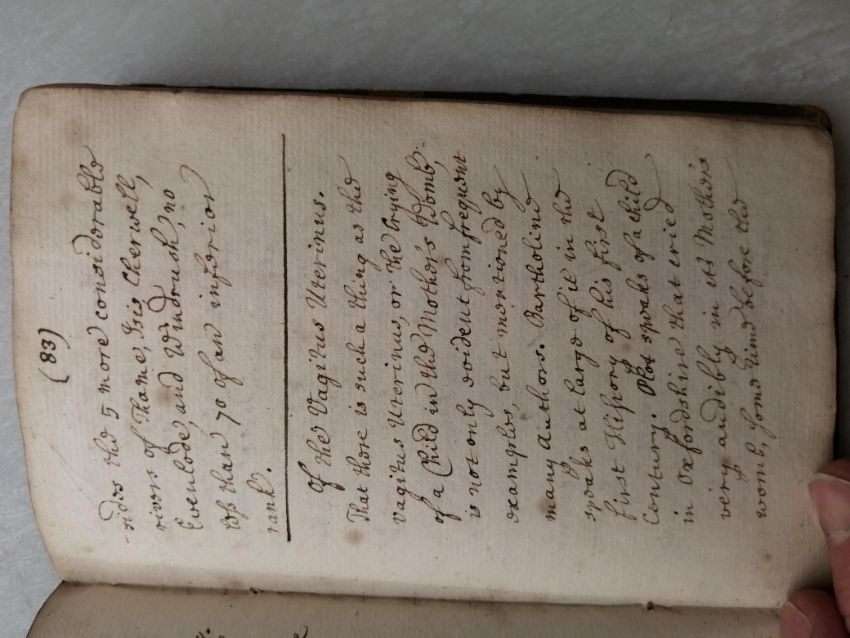 (83)
-sides the 5 more considerable
rivers of Thame, Isis, Cherwell,
Evenlode, and Windrush, no
less than 70 of an inferior
rank.
Of the Vagitus Uterinus.
That there is such a thing as the
Vagitus Uterinus, or the Crying
of a Child in the Mother's Womb,
is not only evident from frequent
examples, but mentioned by
many Authors. Bartholine
speaks at large of it in the
first History of his first
Century. Plot speaks of a child
in Oxfordshire that cried
very audibly in its Mother's
womb, some time before the